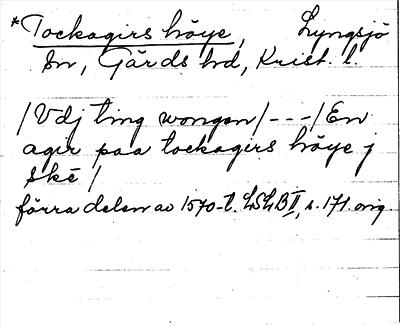 *Tockagirs höye, Lyngsjö
sn, Gärds hd, Krist. l.
/Vdj ting wongen/---/En
agir paa tockagirs höye j
ske/
förra delen av 1570-t. LSLB II, s. 171 orig